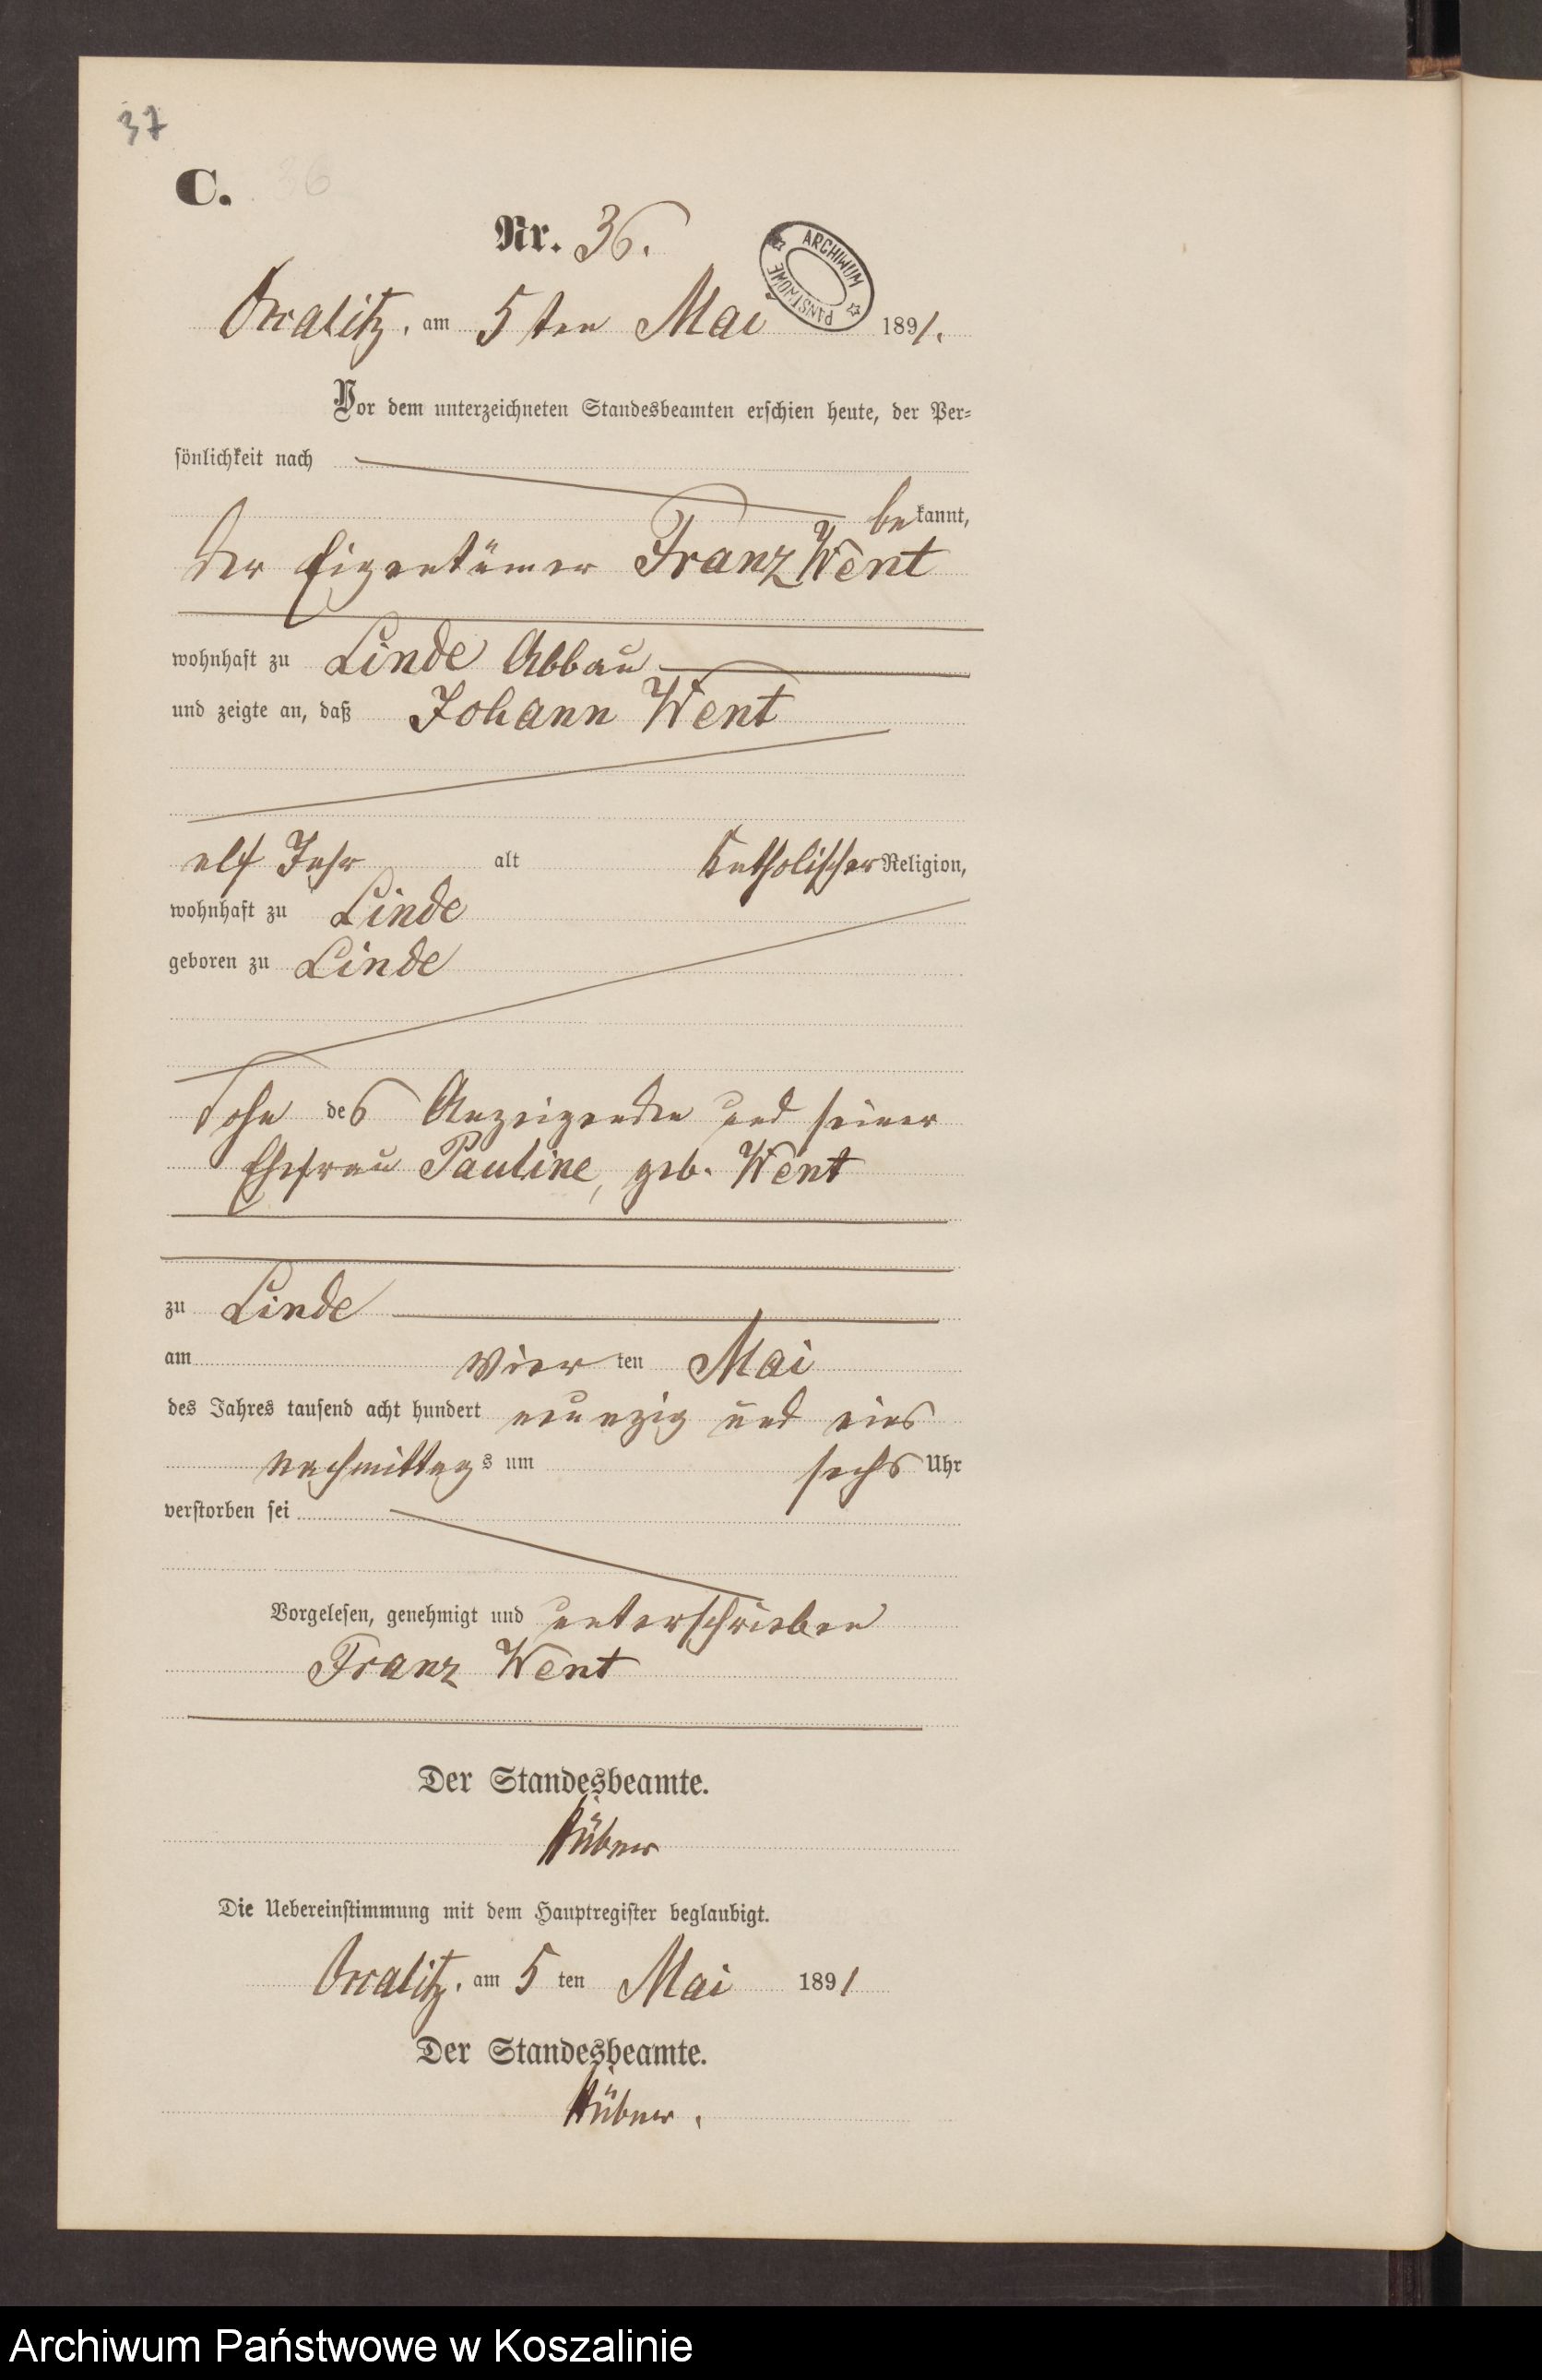 37
C. 36
Nr. 36.
ARCHIWUM PAŃSTWOWE
am 5ten Mai 1891.
Vor dem unterzeichneten Standesbeamten erschien heute, der Per-
sönlichkeit nach
bekannt,
der Eigentümer Franz Went
wohnhaft zu Linde Abbau
und zeigte an, daß Johann Went
elf Jahr alt katholischer Religion,
wohnhaft zu Linde
geboren zu Linde
Sohn des Anzeigenden und seiner
Ehefrau Pauline, geb. Went
zu Linde
am vier ten Mai
des Jahres tausend acht hundert neunzig und eins
nachmittags um sechs Uhr
verstorben sei
Vorgelesen, genehmigt und unterschrieben
Franz Went
Der Standesbeamte.
Die Uebereinstimmung mit dem Hauptregister beglaubigt.
am 5 ten Mai 1891
Der Standesbeamte.
Archiwum Państwowe w Koszalinie